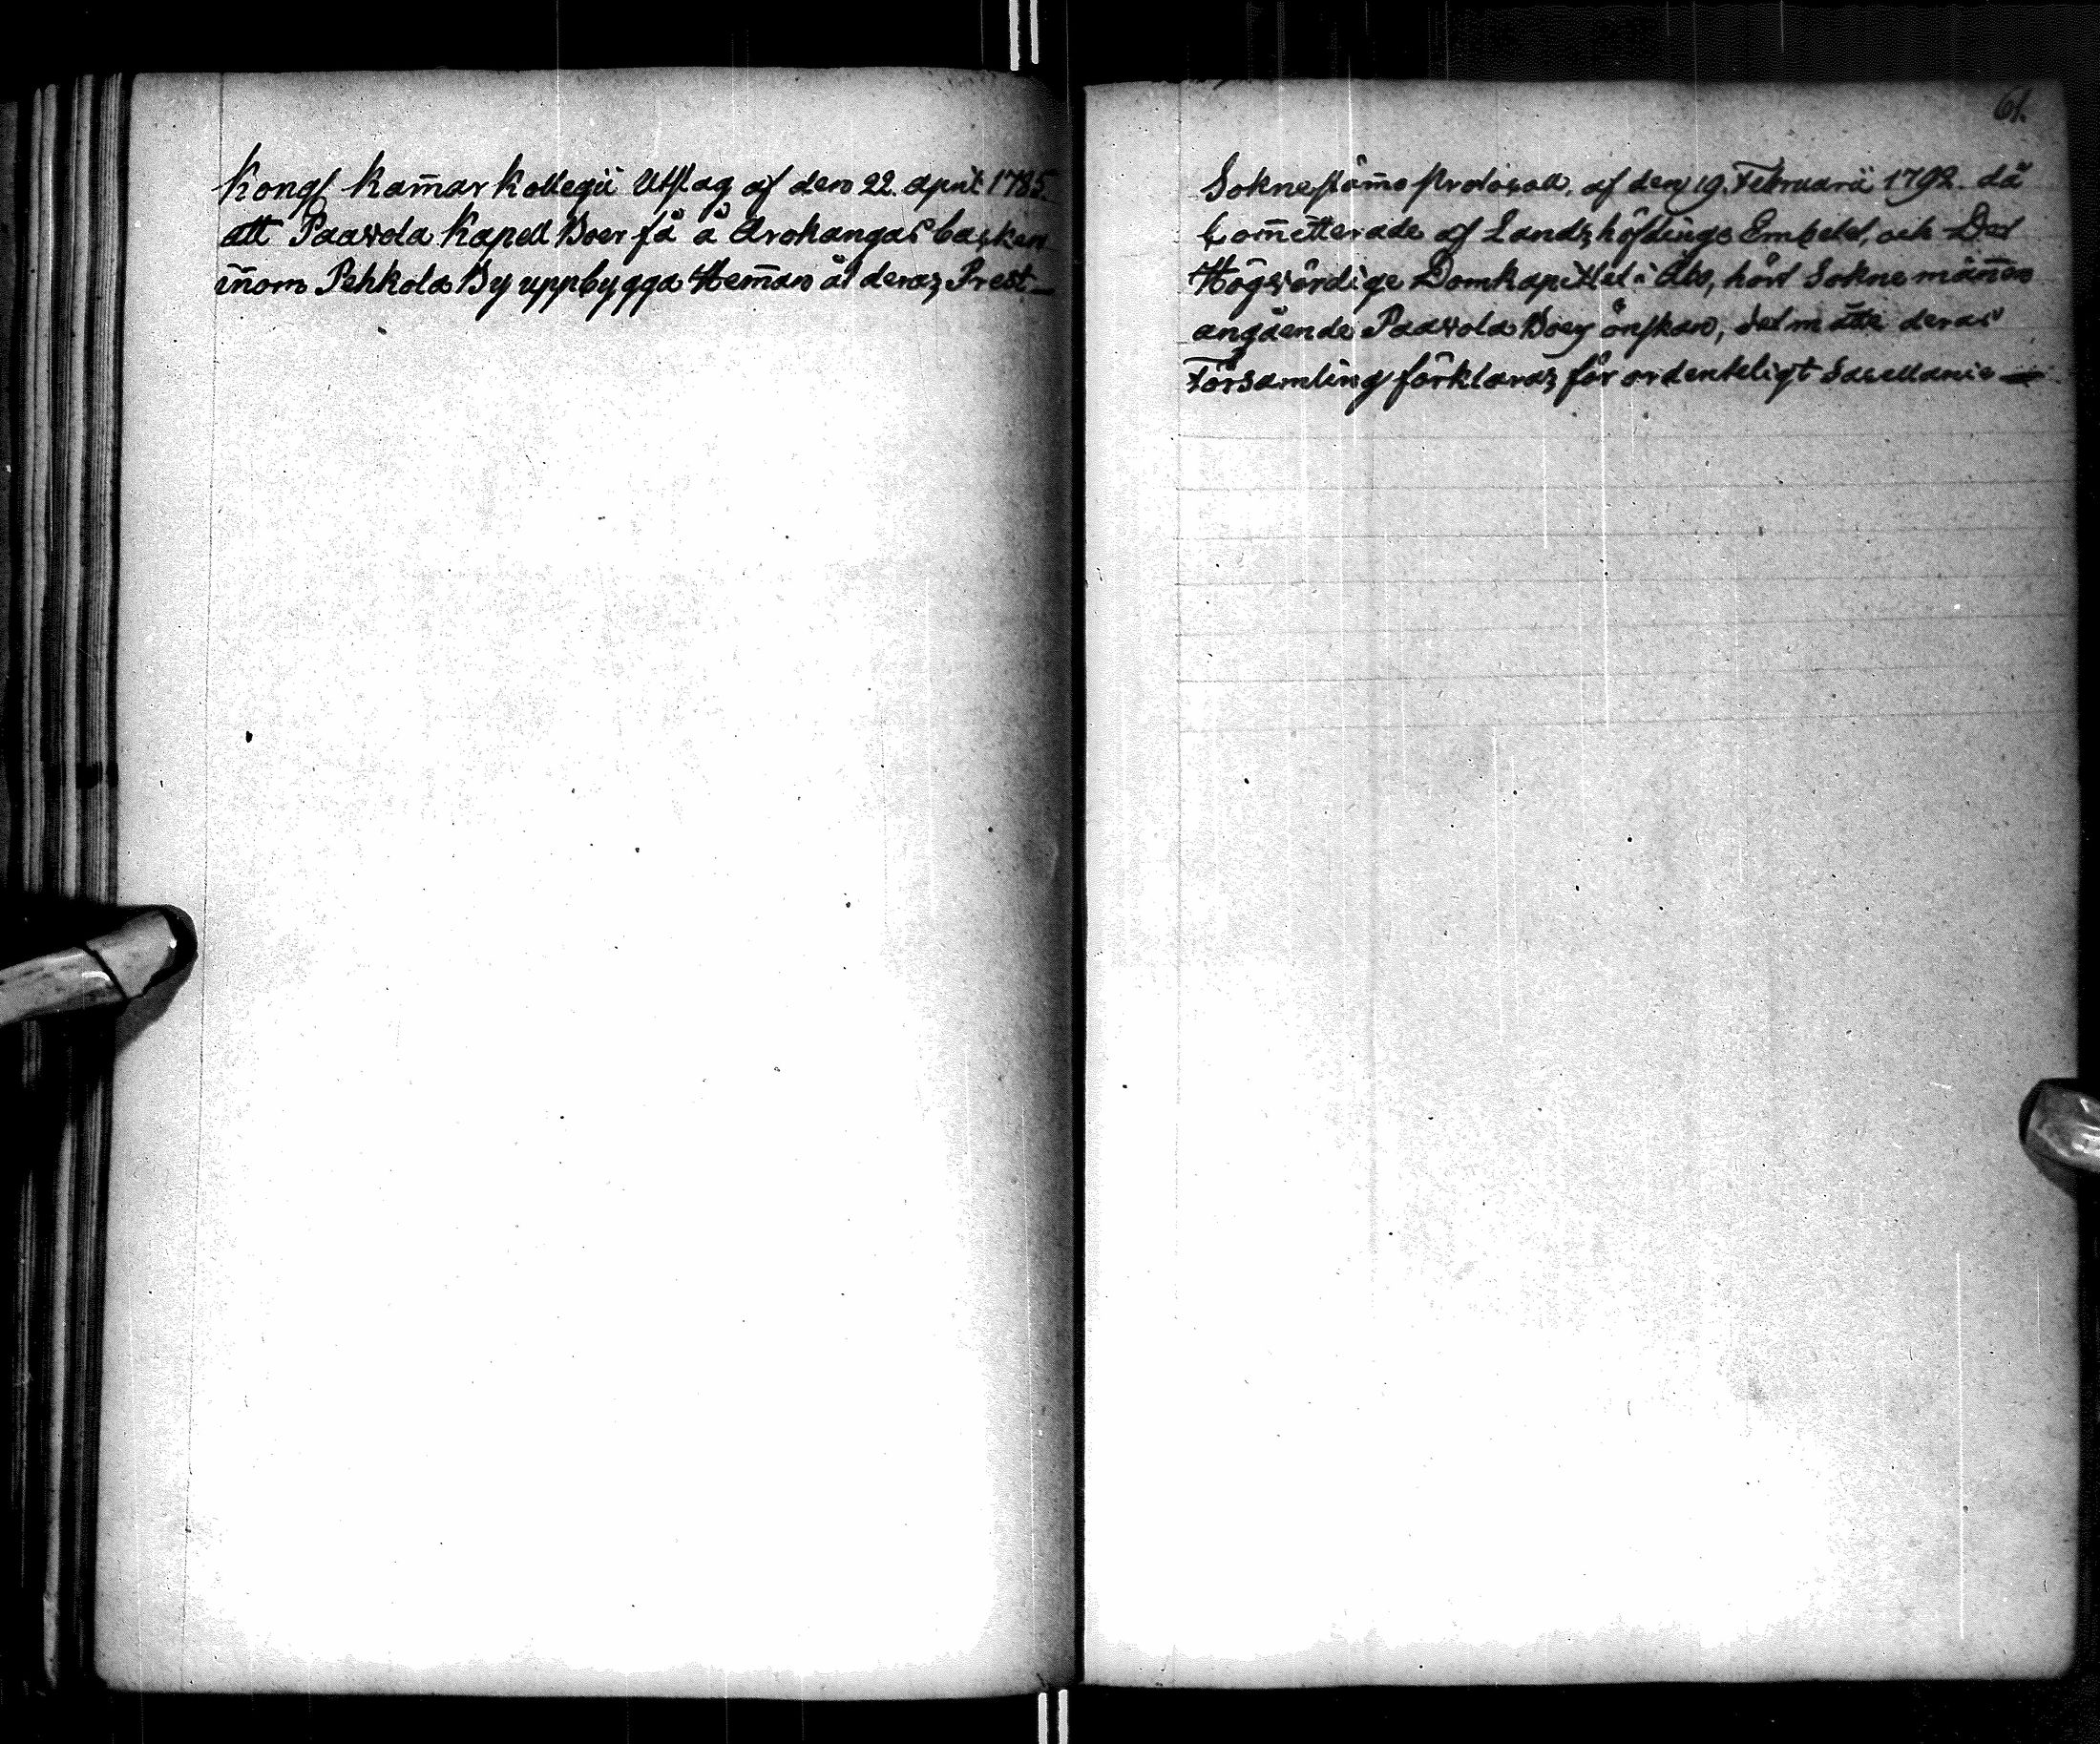 Kongl Kam̄ar Kollegii Utslag af den 22. april 1785.
att Paavola Kapell Boer få å Arokangas backen
in̄om Pehkola By uppbygga Hem̄an åt deras Prest_
61.
Sokneståm̄o Protocoll, af den 19. Februarii 1792. då
Com̄itterade af Landshöfdinge Embetet, och Det
Högvördige Domkapitlet i Åbo, hört Soknemän̄en
angående Paavola Boers önskan, det måtte deras
Församling förklaras för ordenteligt Sacellanie